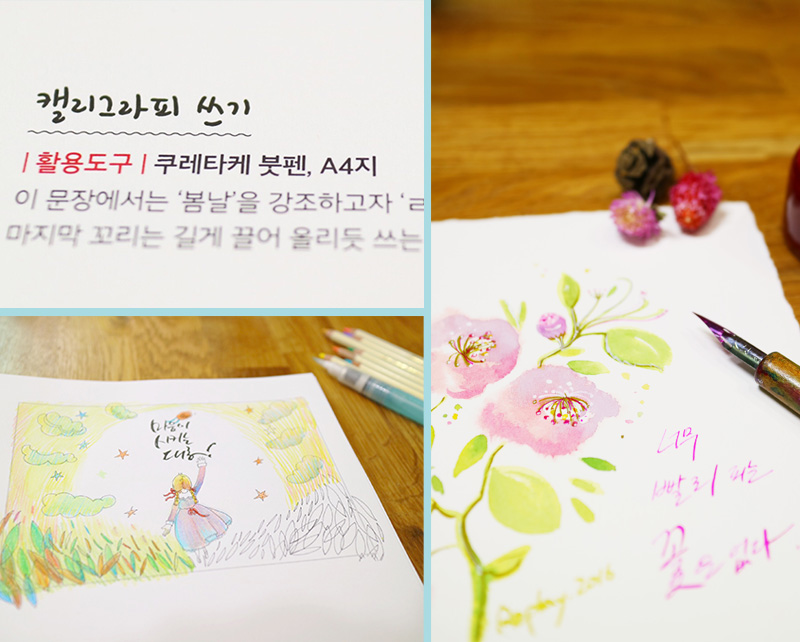 캘리그라피 쓰기
| 활용도구 | 쿠레타케 붓펜, A4지
이 문장에서는 '봄날'을 강조하고자 'ㄹ
마지막 꼬리는 길게 끌어 올리듯 쓰는
마음이
시키는
대로!
너무
빨리 피는
꽃은 없다.
2016